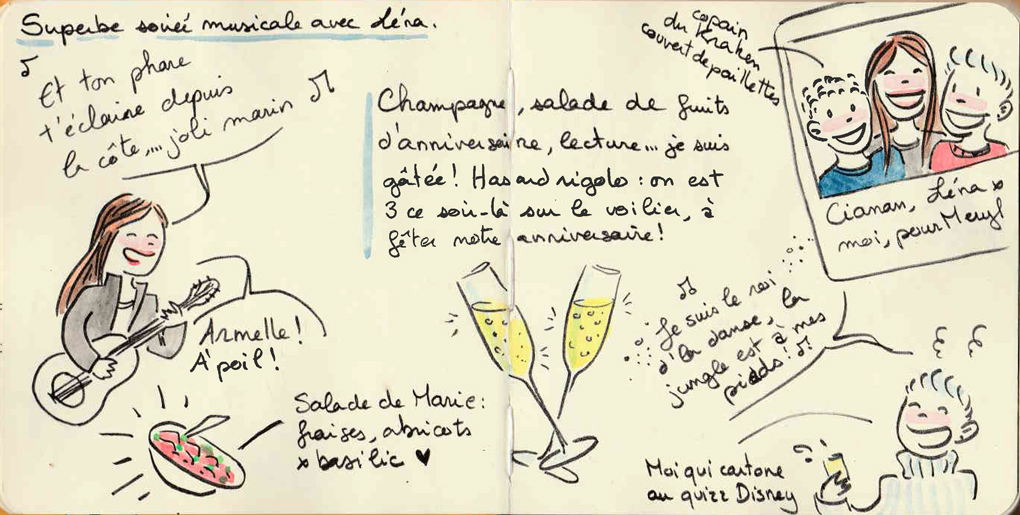 Superbe soirée musicale avec Léna.
Et ton phare
t'éclaire depuis
la côte,... joli marin
Armelle!
À poil!
Salade de Marie:
fraises, abricots
x basilic ♥
Champagne, salade de fruits
d'anniversaire, lecture... je suis
gâtée! Hasard rigolo: on est
3 ce soir-là sur le voilier, à
fêter notre anniversaire!
copain
du Kraken
couvert de paillettes
Cianan, Léna x
moi, pour Meryl
Je suis le roi
d'la danse, la
jungle est à mes
pieds!
Moi qui cartone
au quizz Disney